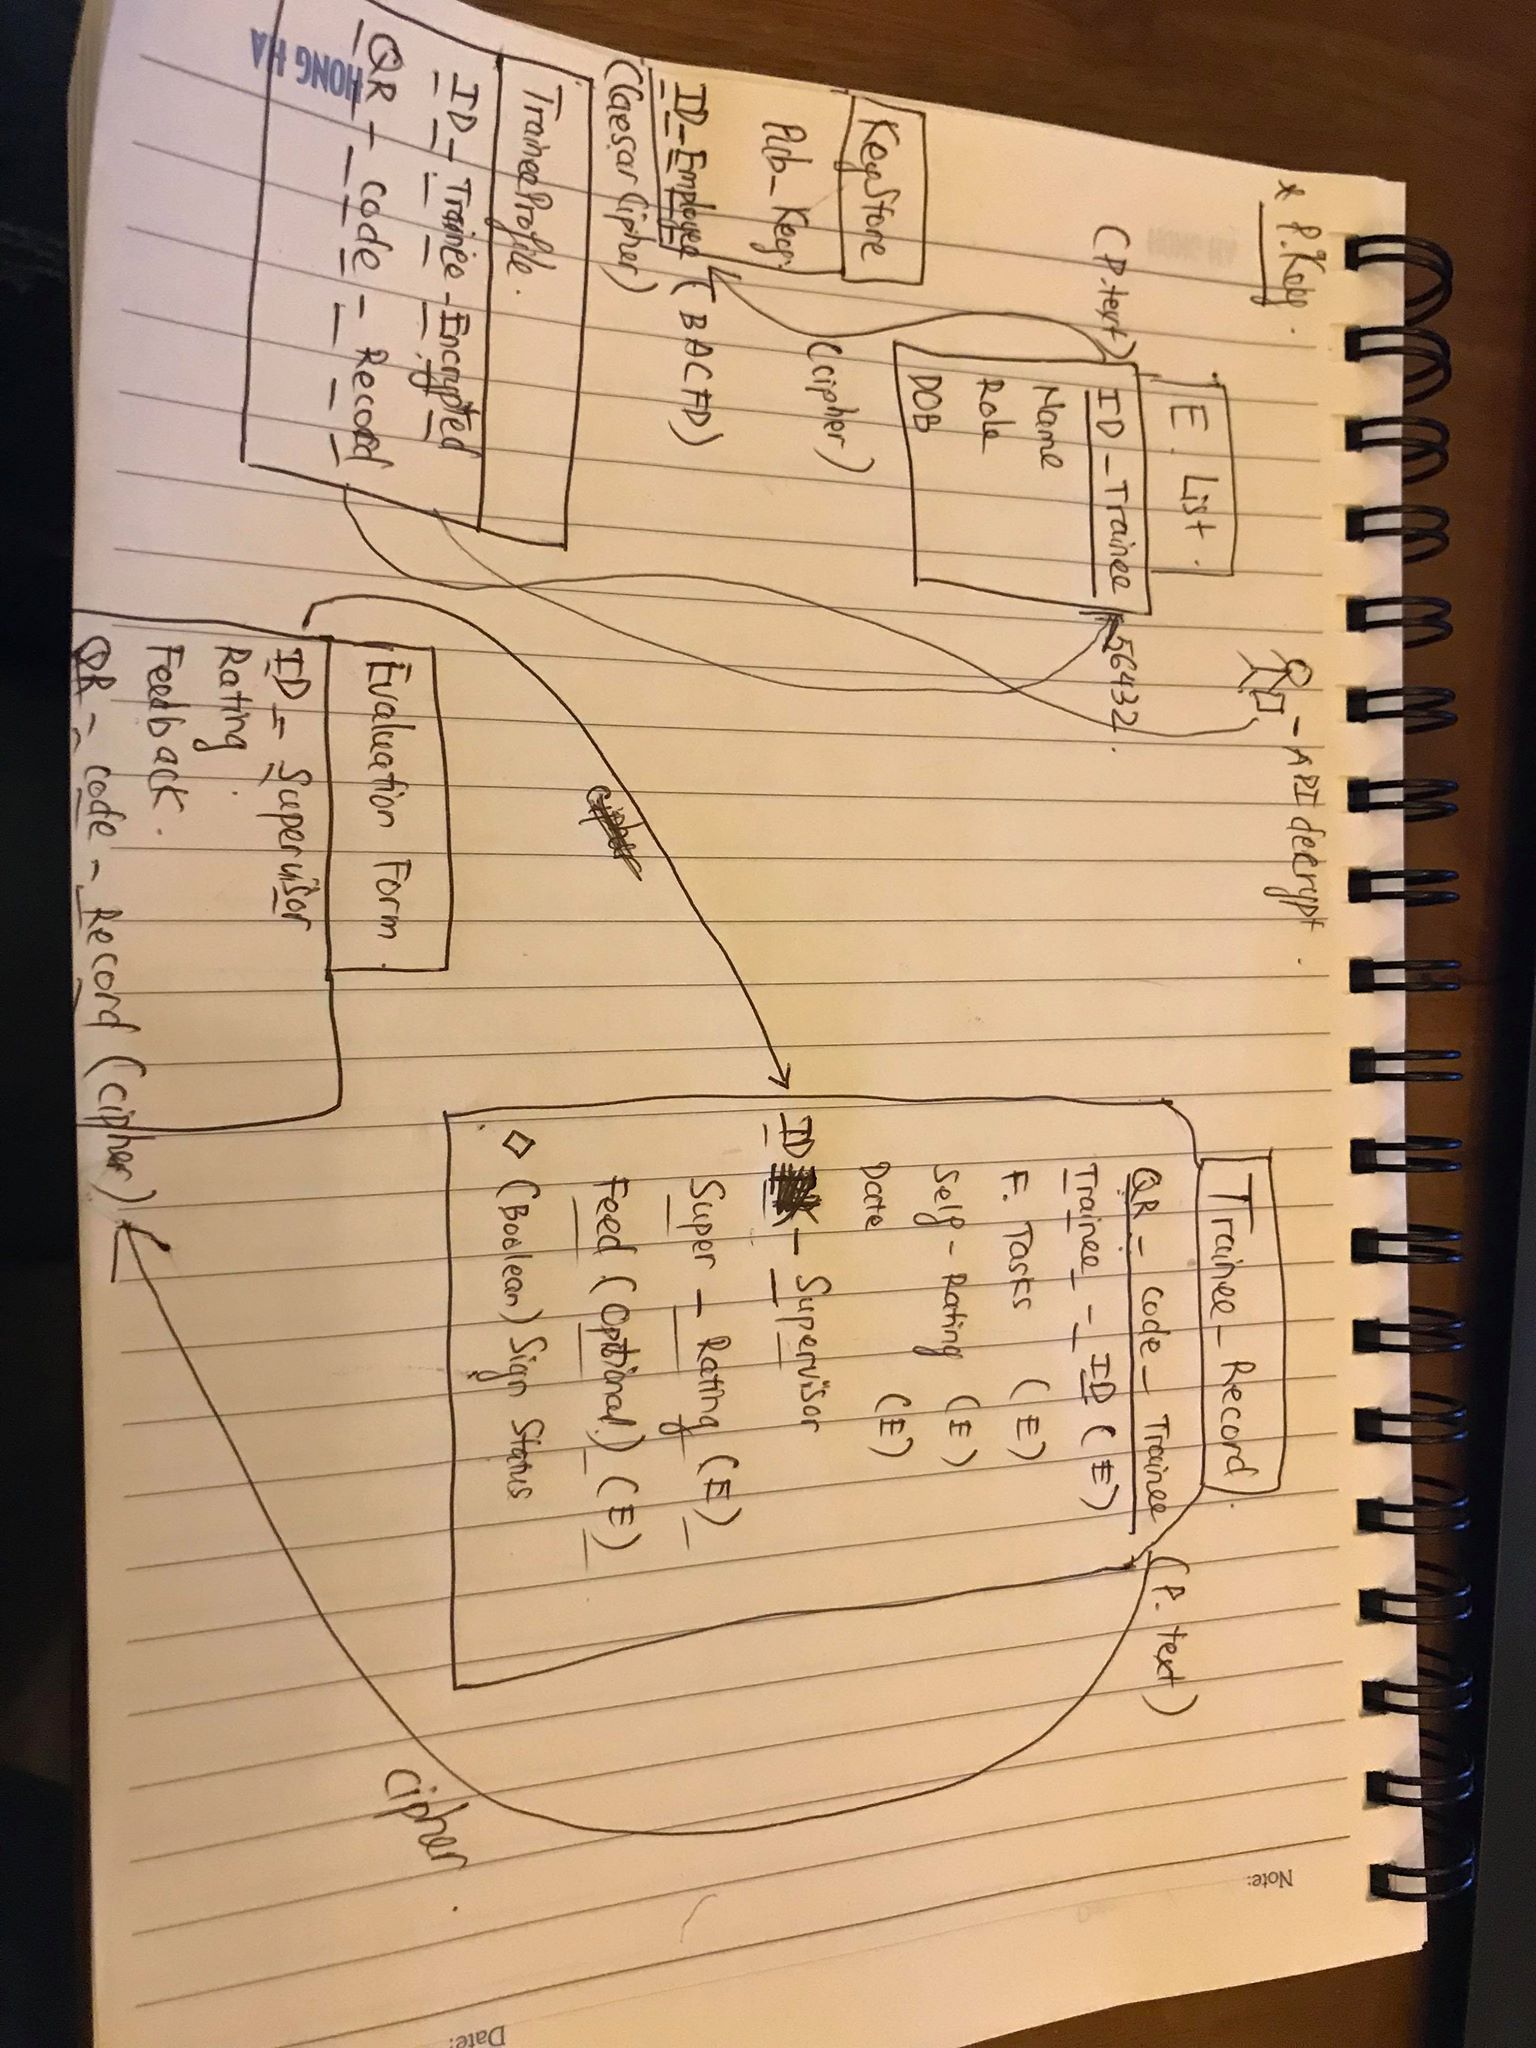 * P. Key.
E. List.
(P.text)
ID - Trainee
256432.
Name
Role
DOB
API decrypt.
KeyStore
Pub_Key.
ID - Employee (BACFD)
(Caesar Cipher)
(cipher)
TraineeProfile.
ID - Trainee - Encrypted
QR - Code - Record
HONG HA
Evaluation Form.
ID - Supervisor
Rating.
Feedback.
QR - Code - Record (cipher)
Trainee_Record.
QR - Code - Trainee
(P. text)
Trainee - ID (E)
F. Tasks (E)
Self - Rating (E)
Date (E)
ID - Supervisor
Super - Rating (E)
Feed (Optional.) (E)
◇ (Boolean) Sign Status
cipher.
Note:
Date: